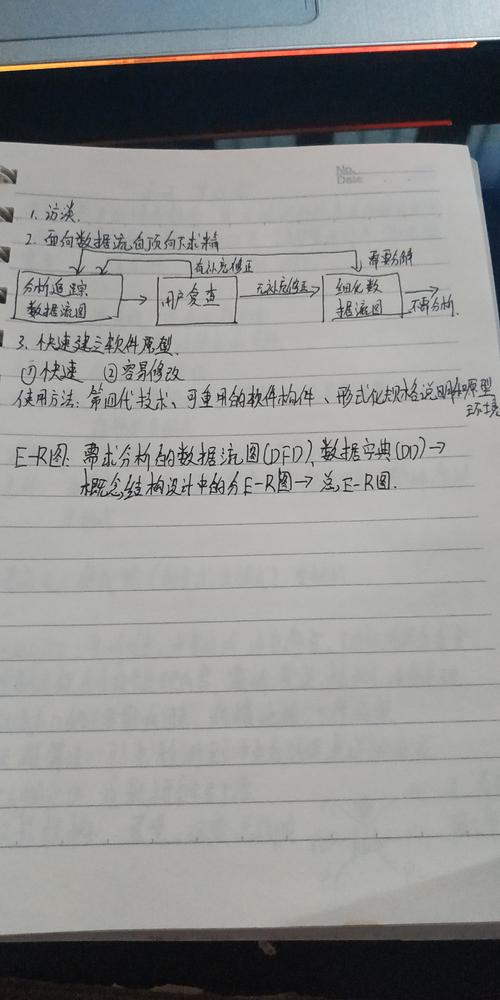 No.
Date
1. 访谈.
2. 面向数据流自顶向下求精
有补充修正
需要分解
分析追踪
数据流图
用户复查
无补充修正
细化数
据流图
不再分析.
3. 快速建立软件原型.
① 快速 ② 容易修改
使用方法: 第四代技术、可重用的软件构件、形式化规格说明和原型
环境
E-R图: 需求分析的数据流图(DFD)、数据字典(DD) →
概念结构设计中的分E-R图 → 总E-R图.